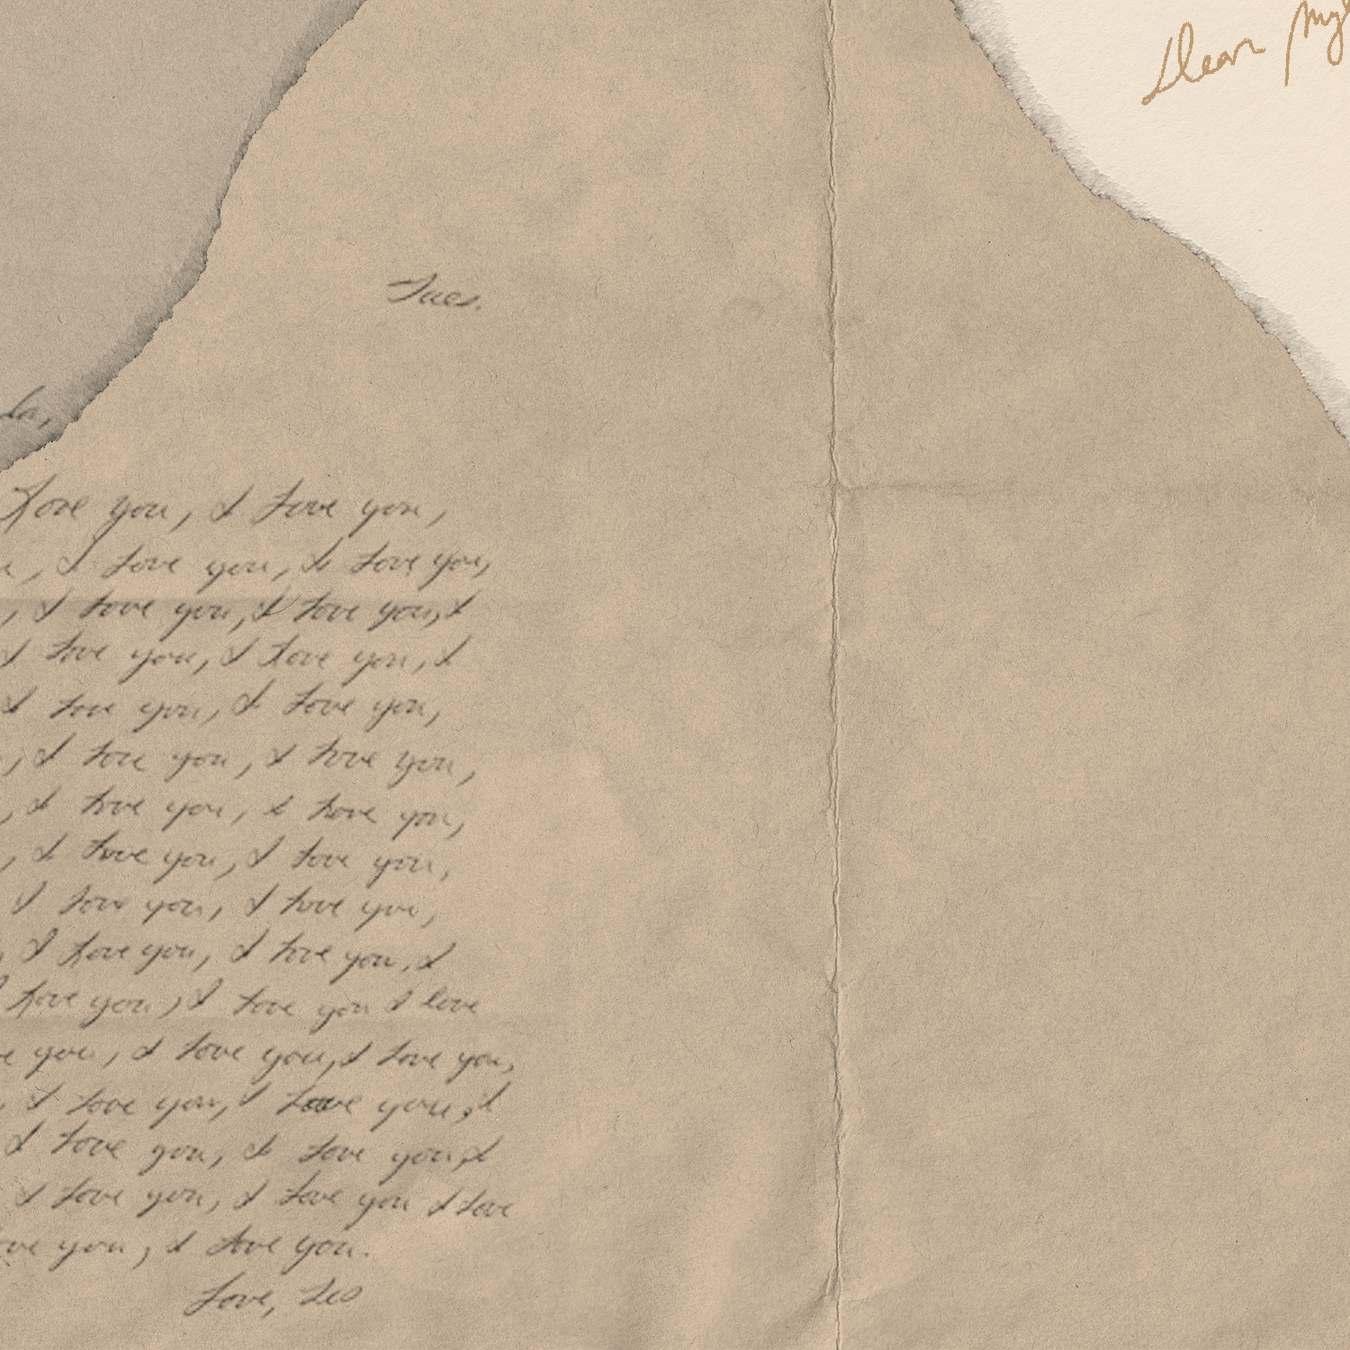 Dear
Tues.
Love you, I Love you,
, I Love you, I Love you,
, I Love you, I Love you, I
I Love you, I Love you, I
I Love you, I Love you,
, I Love you, I Love you,
, I Love you, I Love you,
, I Love you, I Love you,
I Love you, I Love you,
, I Love you, I Love you, I
I Love you, I Love you I love
you, I Love you, I Love you,
, I Love you, I Love you, I
I Love you, I Love you, I
I Love you, I Love you I Love
you, I Love you.
Love, Leo